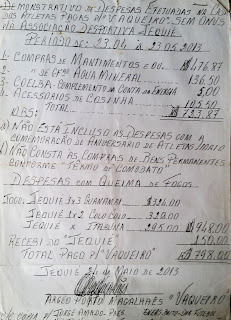 DEMONSTRATIVO DE DESPESAS EFETUADAS NA CASA
DOS ATLETAS PAGAS P/ "VAQUEIRO", SEM ÔNUS
NA ASSOCIAÇÃO DESPORTIVA JEQUIÉ
PERÍODO DE: 23.04 À 23.05.2013
1 - COMPRAS DE MANTIMENTOS E OU. 476.87
2 - " DE ÁGUA MINERAL 136.50
3 - COELBA-COMPLEMENTO DA CONTA DA ENERGIA 5,00
4 - ACESSÓRIOS DE COSINHA 105.50
R$: 723.87
NÃO ESTÁ INCLUSO AS DESPESAS COM A
COMEMORAÇÃO DE ANIVERSARIO DE ATLETAS
NÃO CONSTA AS COMPRAS DE BENS PERMANENTES
CONFORME "TERMO DE COMODATO"
DESPESAS COM QUEIMA DE FOGOS
JOGO: JEQUIÉ 3x3 GUANAMBI $324.00
JEQUIÉ 1x2 COLO COLO 329.00
JEQUIÉ x ITABUNA 295.00 $948.00
RECEBI DO "JEQUIÉ" 150.00
TOTAL PAGO P/ "VAQUEIRO" 798.00
JEQUIÉ DE MAIO DE 2013
ARGEO PORTO MAGALHÃES "VAQUEIRO"
C/ CÓPIA P/ JORGE AMADO, PRES